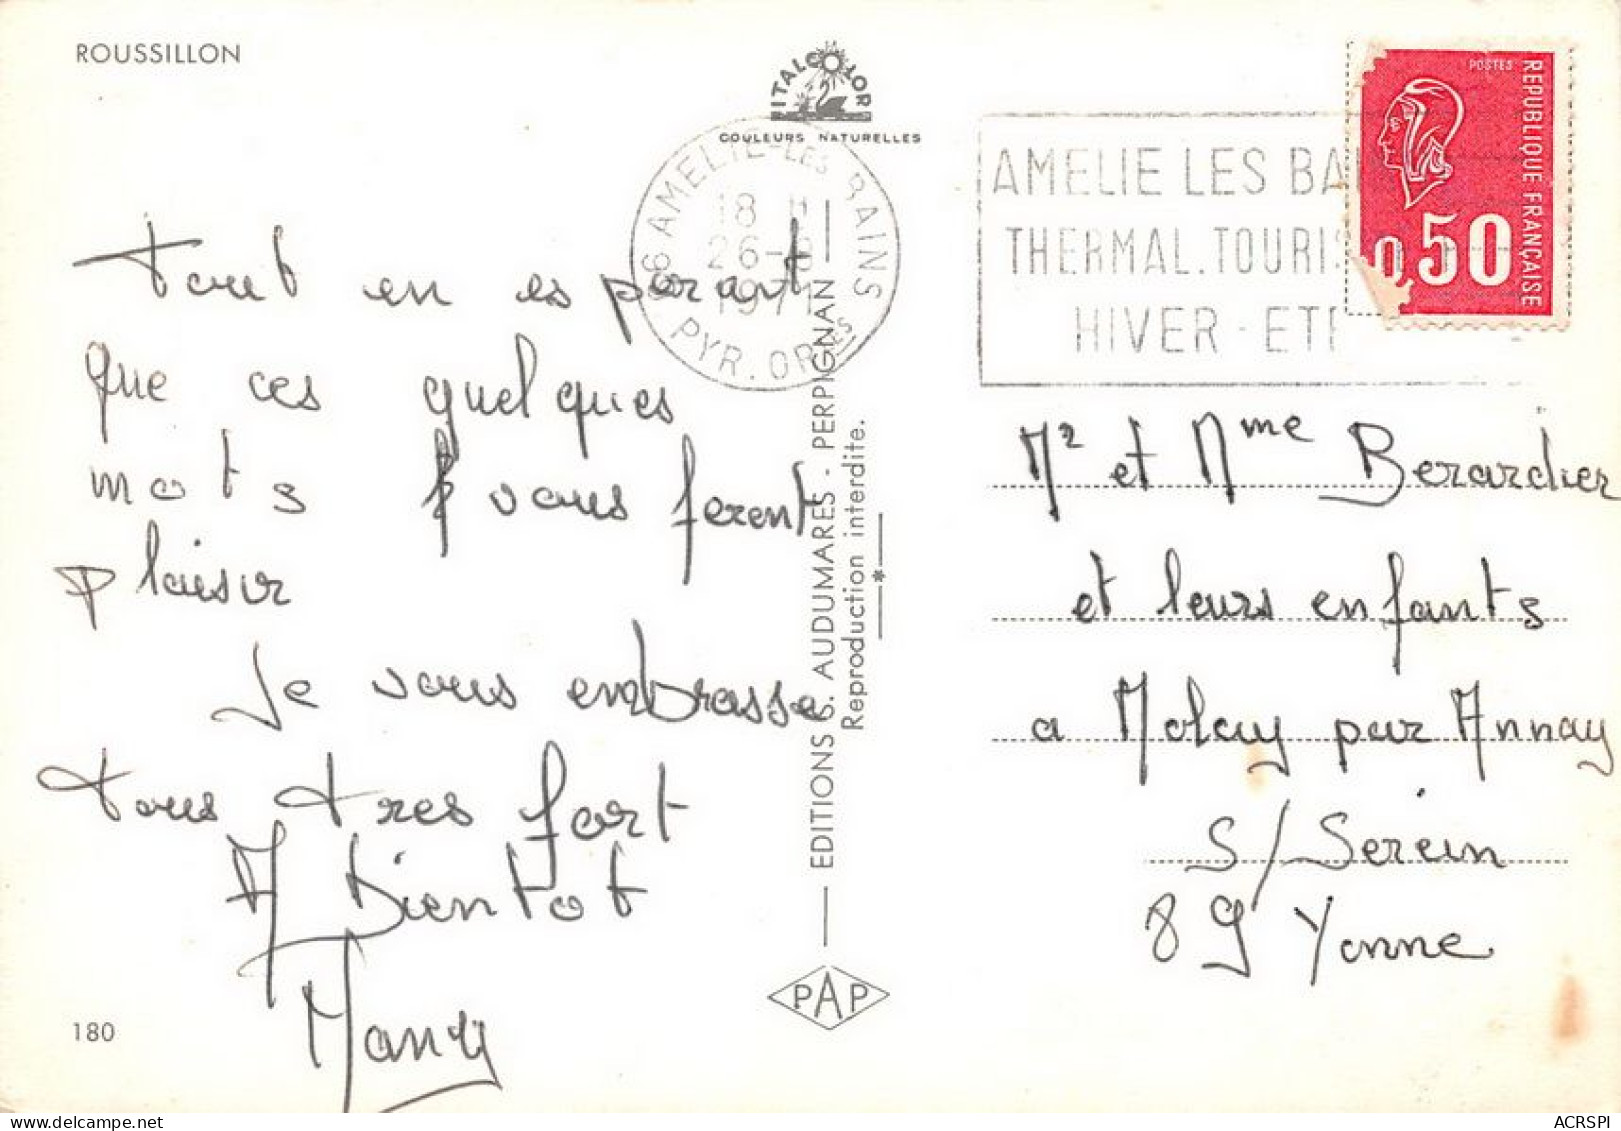 ROUSSILLON
ITALCOLOR
COULEURS NATURELLES
66 AMELIE-LES BAINS
18 H
26-8
1971
PYR. ORles
AMELIE LES BA
THERMAL.TOURIS
HIVER - ETE
POSTES
REPUBLIQUE FRANÇAISE
0,50
Tout en es perant
que ces quelques
mots vous feront
plaisir
Je vous embrasse
tous tres fort
A Bientot
EDITIONS S. AUDUMARES - PERPIGNAN
Reproduction interdite.
PAP
180
Mr et Mme Berardier
et leurs enfants
a Molay par Annay
S/Serein
89 Yonne
ACRSPI